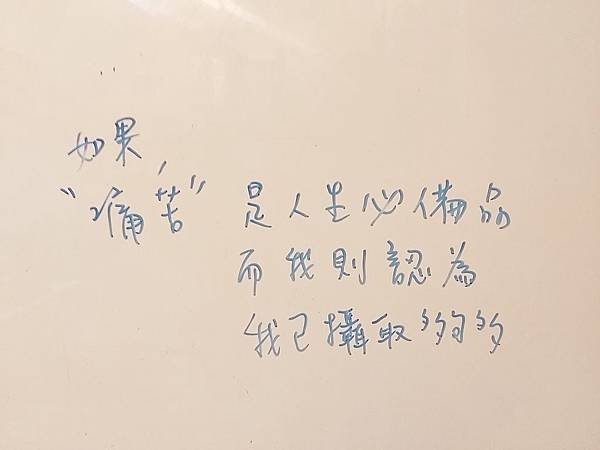 如果,
"痛苦" 是人生必備品
而我則認為
我已攝取夠多